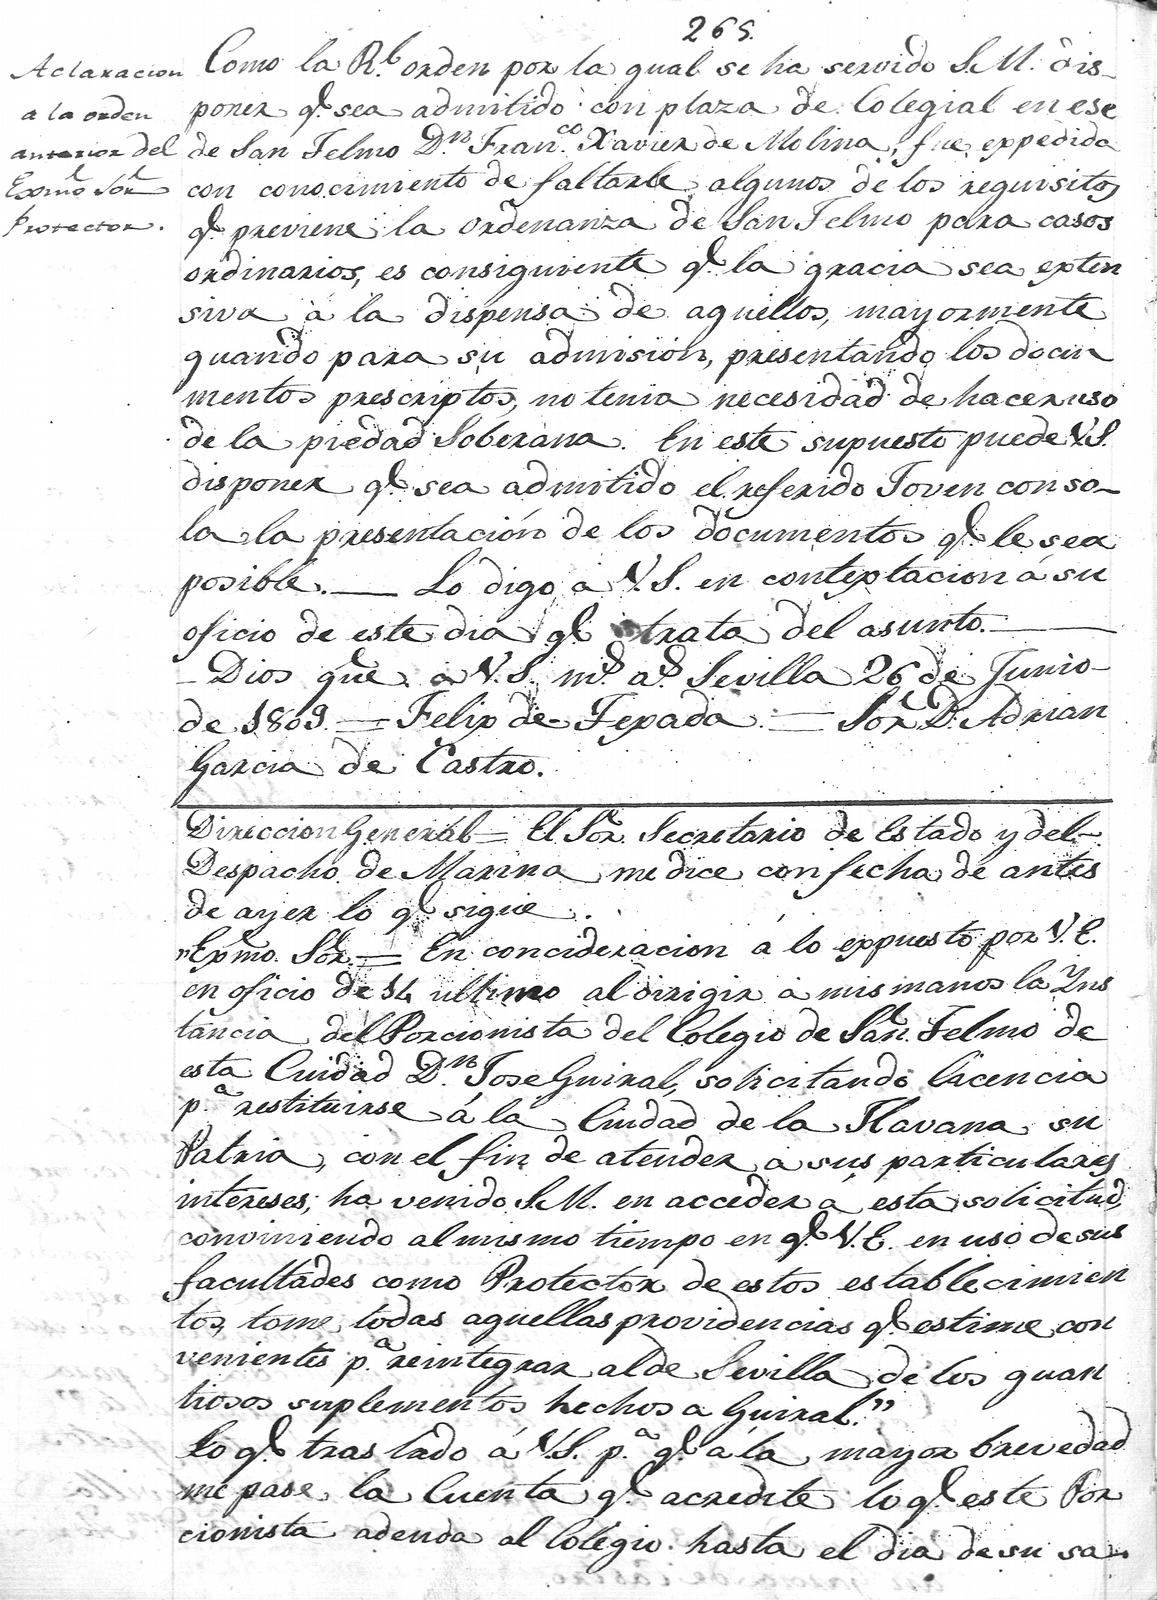 265.
Aclaracion
a la orden
anterior del
Exmô. Sôr
Protector.
Como la Rl. orden por la qual se ha servido S.M. dis-
poner q.e sea admitido con plaza de Colegial en ese
de San Telmo D.n Fran.co Xavier de Molina, fue expedida
con conocimiento de faltarle algunos de los requisitos
q.e previene la ordenanza de San Telmo para casos
ordinarios, es consiguiente q.e la gracia sea exten
siva à la dispensa de aquellos, mayormente
quando para su admision, presentando los docu
mentos prescriptos, no tenia necesidad de hacer uso
de la piedad Soberana. En este supuesto puede V.S.
disponer q.e sea admitido el referido Joven con so-
la la presentación de los documentos q.e le sea
posible.— Lo digo a V.S. en contextacion á su
oficio de este dia q.e trata del asunto.—
- Dios gûe a V.S. m.s a.s Sevilla 26 de Junio-
de 1809.= Felix de Texada.= Sôr D. Adrian
Garcia de Castro.
Direccion General= El Sôr. Secretario de Estado y del-
Despacho de Marina me dice con fecha de antes
de ayer lo q.e sigue.
"Exmô. Sôr.= En concideracion á lo expuesto por V.E.
en oficio de 14 ultimo al dirigir a mis manos la Yns
tancia del Porcionista del Colegio de San Telmo de
esta Cuidad D.n Jose Guiral, solicitando licencia
p.a restituirse á la Ciudad de la Havana su
Patria, con el fin de atender a sus particulares
intereses, ha venido S.M. en acceder a esta solicitud,
conviniendo al mismo tiempo en q.e V.E. en uso de sus
facultades como Protector de estos establecimien
tos, tome todas aquellas providencias q.e estime con
venientes p.a reintegrar al de Sevilla de los quan
tiosos suplementos hechos a Guiral."
Lo q.e traslado á V.S. p.a q.e á la mayor brevedad
me pase la Cuenta q.e acredite lo q.e este Por
cionista adeuda al Colegio hasta el dia de su sa-